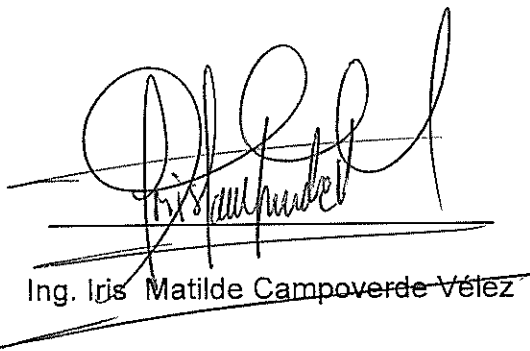 Ing. Iris Matilde Campoverde Vélez